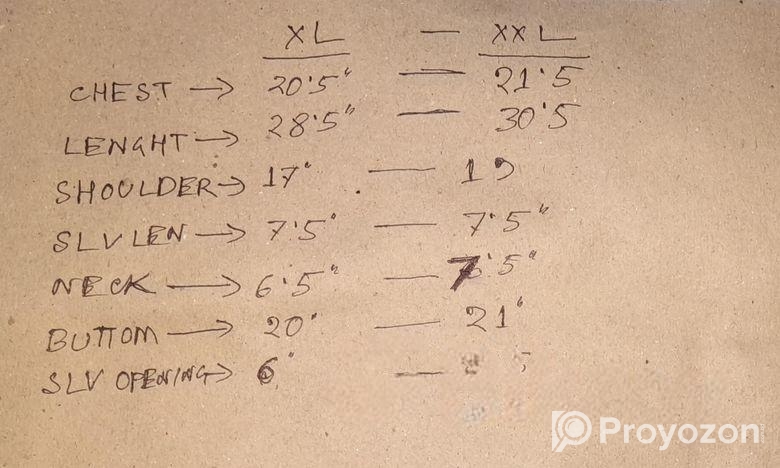 XL — XXL
CHEST → 20'5" — 21'5
LENGHT → 28'5" — 30'5
SHOULDER → 17" — 19
SLV LEN → 7'5" — 7'5"
NECK → 6'5" — 7'5"
BUTTOM → 20" — 21"
SLV OPENING → 6" —
Proyozon